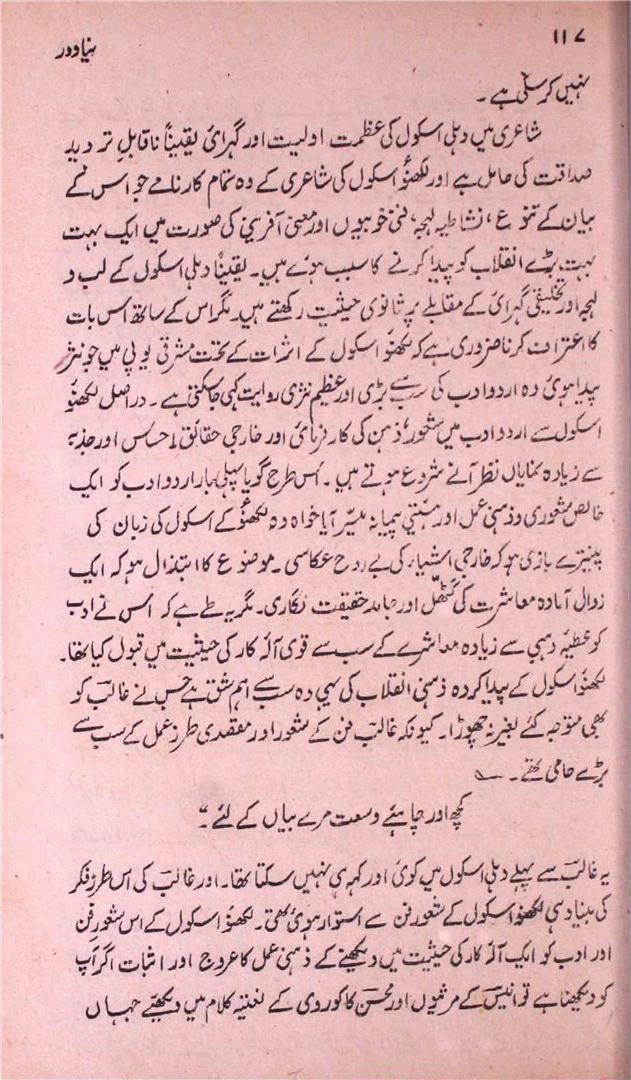 ۱۱۷ نیا دور
نہیں کر سکی ہے۔
شاعری میں دہلی اسکول کی عظمت اولیت اور گہرائی یقیناً ناقابلِ تردید
صداقت کی حامل ہے اور لکھنؤ اسکول کی شاعری کے وہ تمام کارنامے جو اس نے
بیان کے تنوع، نشاطیہ لہجہ، فنی خوبیوں اور معنی آفرینی کی صورت میں ایک بہت
بہت بڑے انقلاب کو پیدا کرنے کا سبب ہوئے ہیں۔ یقیناً دہلی اسکول کے لب و
لہجہ اور تخلیقی گہرائی کے مقابلے پر ثانوی حیثیت رکھتے ہیں۔ مگر اس کے ساتھ اس بات
کا اعتراف کرنا ضروری ہے کہ لکھنؤ اسکول کے اثرات کے تحت مشرقی یوپی میں جو نثر
پیدا ہوئی وہ اردو ادب کی سب سے بڑی اور عظیم نثری روایت کہی جا سکتی ہے۔ دراصل لکھنؤ
اسکول سے اردو ادب میں شعور، ذہن کی کارفرمائی اور خارجی حقائق احساس اور جذبہ
سے زیادہ نمایاں نظر آنے شروع ہوتے ہیں۔ اس طرح گویا پہلی بار اردو ادب کو ایک
خالص شعوری و ذہنی عمل اور ہئیتی پیمانہ میسّر آیا خواہ وہ لکھنؤ کے اسکول کی زبان کی
پینترے بازی ہو کہ خارجی اشیاء کی بے روح عکاسی۔ موضوع کا ابتذال ہو کہ ایک
زوال آمادہ معاشرت کی گٹھل اور جامد حقیقت نگاری۔ مگر یہ طے ہے کہ اس نے ادب
کو عطیۂ وہبی سے زیادہ معاشرے کے سب سے قوی آلہ کار کی حیثیت میں قبول کیا تھا۔
لکھنؤ اسکول کے پیدا کردہ ذہنی انقلاب کی یہی وہ سب سے اہم شق ہے جس نے غالبؔ کو
بھی متوجہ کئے بغیر نہ چھوڑا۔ کیونکہ غالبؔ فن کے شعور اور مقصدی طرزِ عمل کے سب سے
بڑے حامی تھے۔
کچھ اور چاہئے وسعت مرے بیاں کے لئے۔“
یہ غالبؔ سے پہلے دہلی اسکول میں کوئی اور کہہ ہی نہیں سکتا تھا۔ اور غالبؔ کی اس طرزِ فکر
کی بنیاد ہی لکھنؤ اسکول کے شعورِ فن سے استوار ہوئی تھی۔ لکھنؤ اسکول کے اس شعورِ فن
اور ادب کو ایک آلہ کار کی حیثیت میں دیکھنے کے ذہنی عمل کا عروج اور اثبات اگر آپ
کو دیکھنا ہے تو انیسؔ کے مرثیوں اور محسنؔ کاکوروی کے نعتیہ کلام میں دیکھئے جہاں